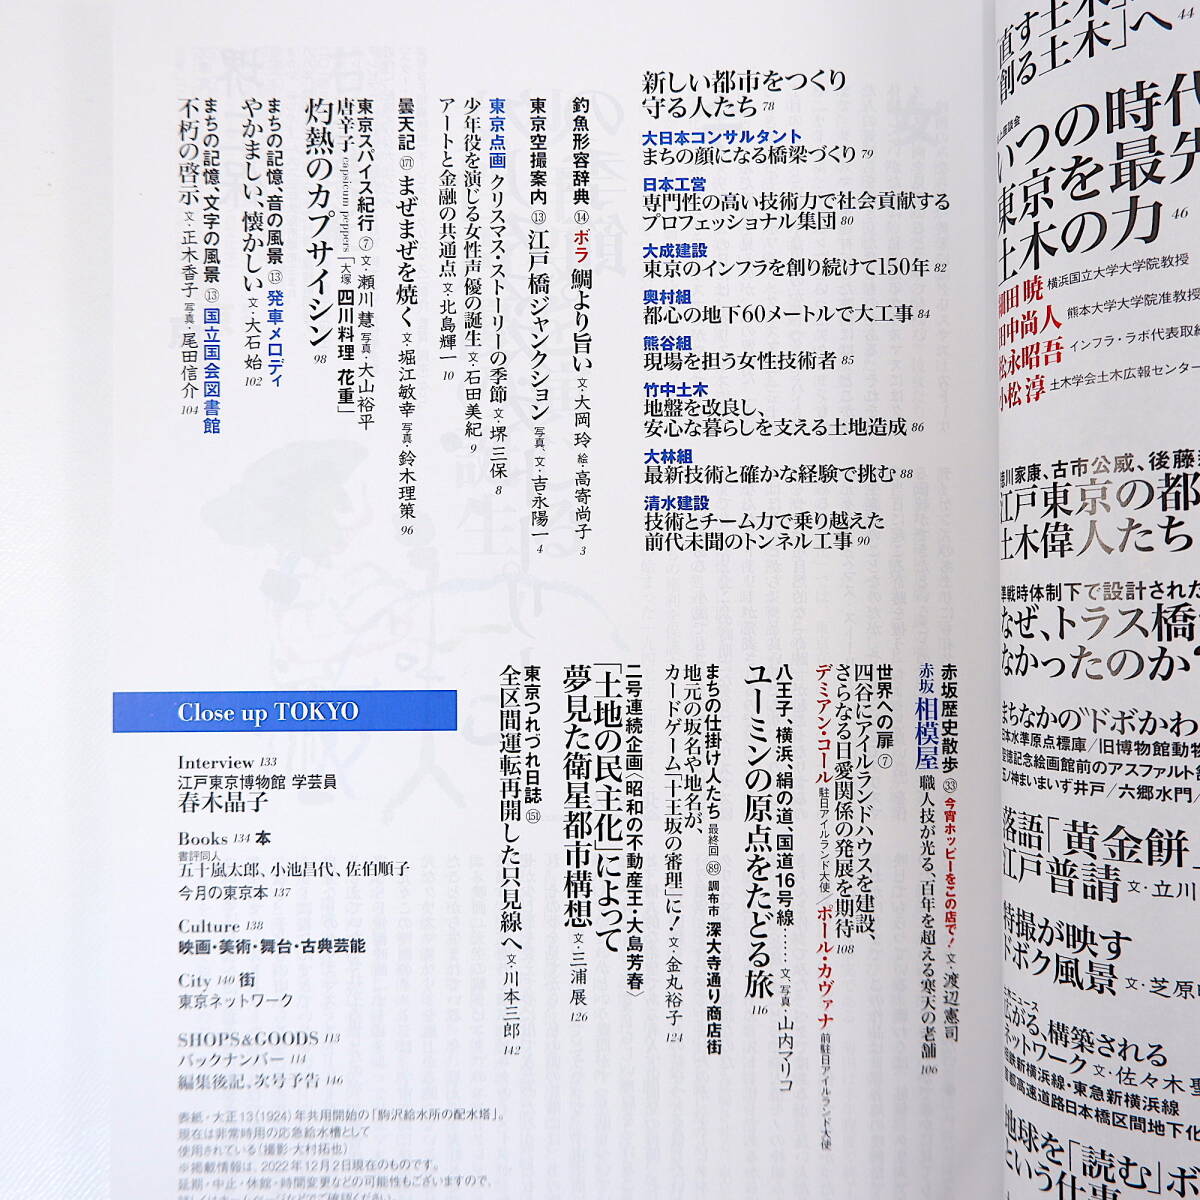 新しい都市をつくり
守る人たち 78
大日本コンサルタント
まちの顔になる橋梁づくり 79
日本工営
専門性の高い技術力で社会貢献する
プロフェッショナル集団 80
大成建設
東京のインフラを創り続けて150年 82
奥村組
都心の地下60メートルで大工事 84
熊谷組
現場を担う女性技術者 85
竹中土木
地盤を改良し、
安心な暮らしを支える土地造成 86
大林組
最新技術と確かな経験で挑む 88
清水建設
技術とチーム力で乗り越えた
前代未聞のトンネル工事 90
釣魚形容辞典 ⑭ ボラ 鯛より旨い 文・大岡 玲 絵・高寄尚子 3
東京空撮案内 ⑬ 江戸橋ジャンクション 写真、文・吉永陽一 4
東京点画 クリスマス・ストーリーの季節 文・堺 三保 8
少年役を演じる女性声優の誕生 文・石田美紀 9
アートと金融の共通点 文・北島輝一 10
曇天記 (171) まぜまぜを焼く 文・堀江敏幸 写真・鈴木理策 96
東京スパイス紀行 ⑦ 文・瀬川慧 写真・大山裕平
唐辛子 capsicum peppers 「大塚 四川料理 花重」
灼熱のカプサイシン 98
まちの記憶、音の風景 ⑬ 発車メロディ
やかましい、懐かしい 文・大石 始 102
まちの記憶、文字の風景 ⑬ 国立国会図書館
不朽の啓示 文・正木香子 写真・尾田信介 104
赤坂歴史散歩 ㉝ 今宵ホッピーをこの店で! 文・渡辺憲司
赤坂 相模屋 職人技が光る、百年を超える寒天の老舗 106
世界への扉 ⑦
四谷にアイルランドハウスを建設、
さらなる日愛関係の発展を期待 108
デミアン・コール 駐日アイルランド大使/ポール・カヴァナ 前駐日アイルランド大使
八王子、横浜、絹の道、国道16号線…… 文、写真・山内マリコ
ユーミンの原点をたどる旅 116
まちの仕掛け人たち 最終回 (89) 調布市 深大寺通り商店街
地元の坂名や地名が、
カードゲーム「十王坂の審理」に! 文・金丸裕子 124
二号連続企画〈昭和の不動産王・大島芳春〉
「土地の民主化」によって
夢見た衛星都市構想 文・三浦 展 126
東京つれづれ日誌 (151)
全区間運転再開した只見線へ 文・川本三郎 142
Close up TOKYO
Interview 133
江戸東京博物館 学芸員
春木晶子
Books 134 本
書評同人
五十嵐太郎、小池昌代、佐伯順子
今月の東京本 137
Culture 138
映画・美術・舞台・古典芸能
City 140 街
東京ネットワーク
SHOPS&GOODS 113
バックナンバー 114
編集後記、次号予告 146
表紙・大正13(1924)年共用開始の「駒沢給水所の配水塔」。
現在は非常時用の応急給水槽として
使用されている(撮影・大村拓也)
※掲載情報は、2022年12月2日現在のものです。
延期・中止・休館・時間変更などの可能性もございますので、
詳しくはホームページなどでご確認ください。
直す土木
創る土木」へ 44
いつの時代
東京を最先
土木の力 46
田 暁 横浜国立大学大学院教授
田中尚人 熊本大学大学院准教授
松永昭吾 インフラ・ラボ代表取締
小松 淳 土木学会土木広報センター
徳川家康、古市公威、後藤
江戸東京の都
土木偉人たち
準戦時体制下で設計された
なぜ、トラス橋
なかったのか?
まちなかの"ドボかわ
日本水準原点標庫/旧博物館動物
聖徳記念絵画館前のアスファルト
五ノ神まいまいず井戸/六郷水門/
落語「黄金餅」
江戸普請 文・立川
特撮が映す
ドボク風景 文・芝原
広がる、構築される
ネットワーク 文・佐々木
相鉄新横浜線・東急新横浜線
首都高速道路日本橋区間地下化
地球を「読む」ボ
という仕事